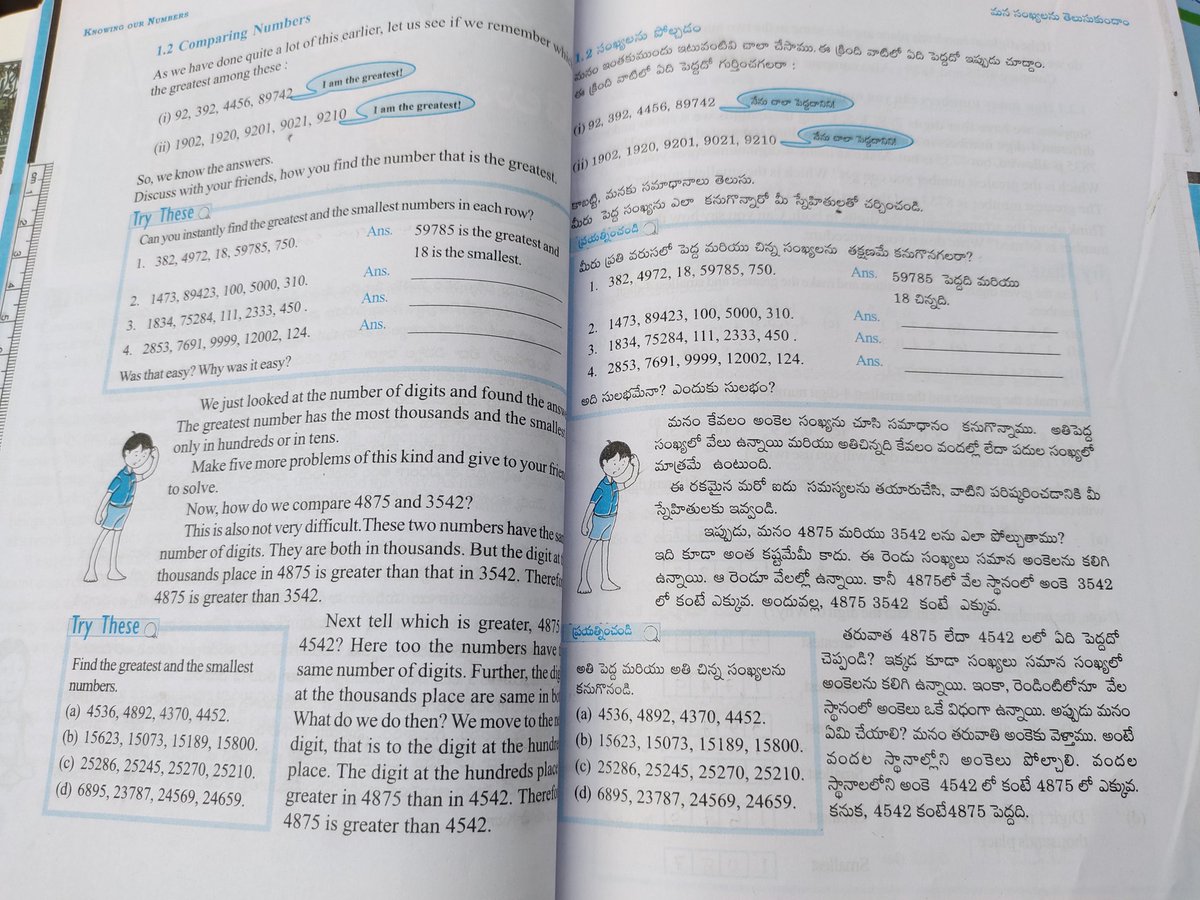 KNOWING OUR NUMBERS
1.2 Comparing Numbers
As we have done quite a lot of this earlier, let us see if we remember
the greatest among these :
(i) 92, 392, 4456, 89742
I am the greatest!
(ii) 1902, 1920, 9201, 9021, 9210
I am the greatest!
So, we know the answers.
Discuss with your friends, how you find the number that is the greatest.
Try These
Can you instantly find the greatest and the smallest numbers in each row?
1. 382, 4972, 18, 59785, 750. Ans. 59785 is the greatest and
18 is the smallest.
2. 1473, 89423, 100, 5000, 310. Ans.
3. 1834, 75284, 111, 2333, 450 . Ans.
4. 2853, 7691, 9999, 12002, 124. Ans.
Was that easy? Why was it easy?
We just looked at the number of digits and found the
The greatest number has the most thousands and the smallest
only in hundreds or in tens.
Make five more problems of this kind and give to your
to solve.
Now, how do we compare 4875 and 3542?
This is also not very difficult.These two numbers have the
number of digits. They are both in thousands. But the digit at
thousands place in 4875 is greater than that in 3542.
4875 is greater than 3542.
Try These
Find the greatest and the smallest
numbers.
(a) 4536, 4892, 4370, 4452.
(b) 15623, 15073, 15189, 15800.
(c) 25286, 25245, 25270, 25210.
(d) 6895, 23787, 24569, 24659.
Next tell which is greater, 4875
4542? Here too the numbers have
same number of digits. Further, the
at the thousands place are same in
What do we do then? We move to the
digit, that is to the digit at the
place. The digit at the hundreds place
greater in 4875 than in 4542.
4875 is greater than 4542.
మన సంఖ్యలను తెలుసుకుందాం
1.2 సంఖ్యలను పోల్చడం
మనం ఇంతకుముందు ఇటువంటివి చాలా చేసాము. ఈ క్రింది వాటిలో ఏది పెద్దదో ఇప్పుడు చూద్దాం.
ఈ క్రింది వాటిలో ఏది పెద్దదో గుర్తించగలరా :
(i) 92, 392, 4456, 89742
నేను చాలా పెద్దదానిని!
(ii) 1902, 1920, 9201, 9021, 9210
నేను చాలా పెద్దదానిని!
కాబట్టి, మనకు సమాధానాలు తెలుసు.
మీరు పెద్ద సంఖ్యను ఎలా కనుగొన్నారో మీ స్నేహితులతో చర్చించండి.
ప్రయత్నించండి
మీరు ప్రతి వరుసలో పెద్ద మరియు చిన్న సంఖ్యలను తక్షణమే కనుగొనగలరా?
1. 382, 4972, 18, 59785, 750. Ans. 59785 పెద్దది మరియు
18 చిన్నది.
2. 1473, 89423, 100, 5000, 310. Ans.
3. 1834, 75284, 111, 2333, 450 . Ans.
4. 2853, 7691, 9999, 12002, 124. Ans.
అది సులభమేనా? ఎందుకు సులభం?
మనం కేవలం అంకెల సంఖ్యను చూసి సమాధానం కనుగొన్నాము. అతిపెద్ద
సంఖ్యలో వేలు ఉన్నాయి మరియు అతిచిన్నది కేవలం వందల్లో లేదా పదుల సంఖ్యలో
మాత్రమే ఉంటుంది.
ఈ రకమైన మరో ఐదు సమస్యలను తయారుచేసి, వాటిని పరిష్కరించడానికి మీ
స్నేహితులకు ఇవ్వండి.
ఇప్పుడు, మనం 4875 మరియు 3542 లను ఎలా పోల్చుతాము?
ఇది కూడా అంత కష్టమేమీ కాదు. ఈ రెండు సంఖ్యలు సమాన అంకెలను కలిగి
ఉన్నాయి. ఆ రెండూ వేలల్లో ఉన్నాయి. కానీ 4875లో వేల స్థానంలో అంకె 3542
లో కంటే ఎక్కువ. అందువల్ల, 4875 3542 కంటే ఎక్కువ.
ప్రయత్నించండి
అతి పెద్ద మరియు అతి చిన్న సంఖ్యలను
కనుగొనండి.
(a) 4536, 4892, 4370, 4452.
(b) 15623, 15073, 15189, 15800.
(c) 25286, 25245, 25270, 25210.
(d) 6895, 23787, 24569, 24659.
తరువాత 4875 లేదా 4542 లలో ఏది పెద్దదో
చెప్పండి? ఇక్కడ కూడా సంఖ్యలు సమాన సంఖ్యలో
అంకెలను కలిగి ఉన్నాయి. ఇంకా, రెండింటిలోనూ వేల
స్థానంలో అంకెలు ఒకే విధంగా ఉన్నాయి. అప్పుడు మనం
ఏమి చేయాలి? మనం తరువాతి అంకెకు వెళ్తాము. అంటే
వందల స్థానాల్లోని అంకెలు పోల్చాలి. వందల
స్థానాలలోని అంకె 4542 లో కంటే 4875 లో ఎక్కువ.
కనుక, 4542 కంటే4875 పెద్దది.